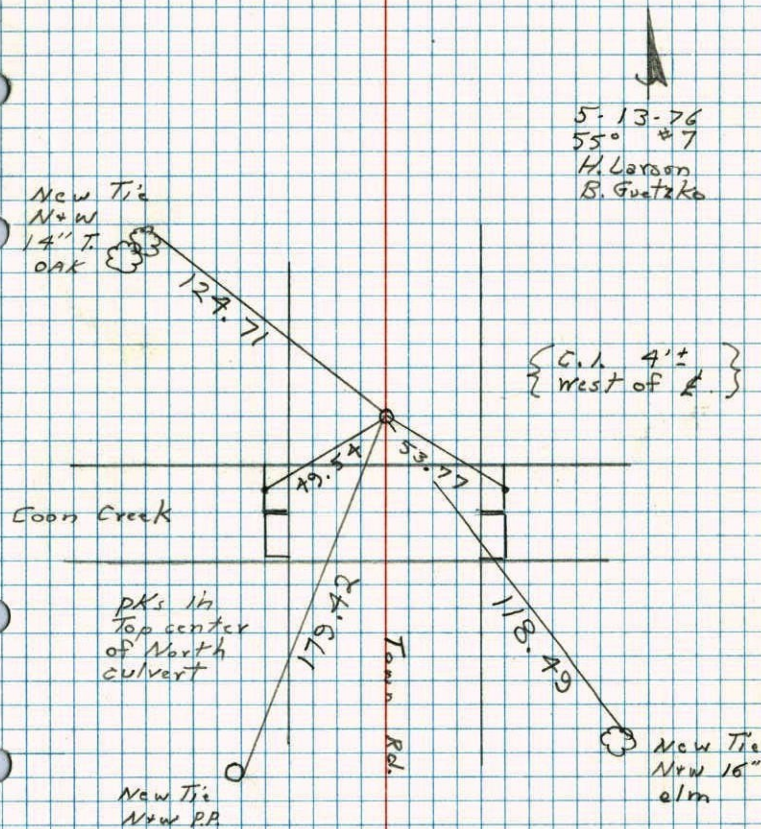 5-13-76
55° #7
H. Larson
B. Guetzko
New Tie
N+W
14" T.
OAK
124.71
{ C.I. 4'±
West of ℄. }
49.54
53.77
Coon Creek
PKs in
Top center
of North
culvert
179.42
118.49
Town Rd.
New Tie
N+W 16"
elm
New Tie
N+W P.P.